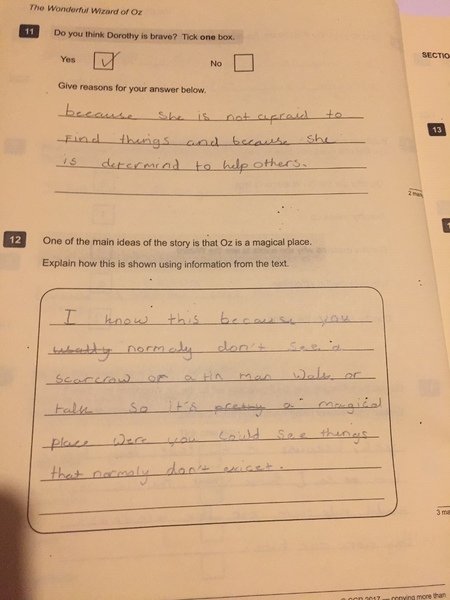 The Wonderful Wizard of Oz
11 Do you think Dorothy is brave? Tick one box.
Yes No
Give reasons for your answer below.
because she is not afraid to
Find things and because she
is determind to help others.
12 One of the main ideas of the story is that Oz is a magical place.
Explain how this is shown using information from the text.
I know this because you
usally normaly don't see a
scarcrow or a tin man walk or
talk so it's pretty a magical
place were you could see things
that normaly don't exicst.
SECTIO
13
2 ma
3 ma
2017 — copying more than